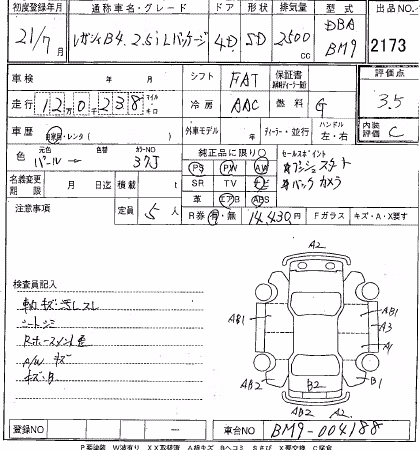 初度登録年月 通称車名・グレード ドア 形状 排気量 型式 出品No.
21/7月 レガシィB4. 2.5iLパッケージ 4D SD 2500cc DBA BM9 2173
車検 年 月 シフト FAT 保証書 評価点
走行 12万0千238 マイル キロ 冷房 AAC 燃料 G 3.5
車歴 自家用・レンタ( ) 外車モデル 年 ディーラー・並行 ハンドル 左・右 内装評価 C
色 元色 パール 色替 カラーNo 37J
純正品に限り○ セールスポイント
PS PW AW プッシュスタート
SR TV ナビ バックカメラ
革 エアB ABS
名義変更期限 月 日迄 積載 t
注意事項 定員 5人 R券 有・無 14,430円 Fガラス キズ・A・X要す
検査員記入
軸キズ汚レスレ
シートシミ
A/W キズ
A2
AB1 AB1
A3
A1
AB2 B2 B1
AB2 A2
登録No. 車台No. BM9-004188
P要塗装 W波有り XX取替済 A線キズ Bヘコミ Sさび X要交換 C腐食